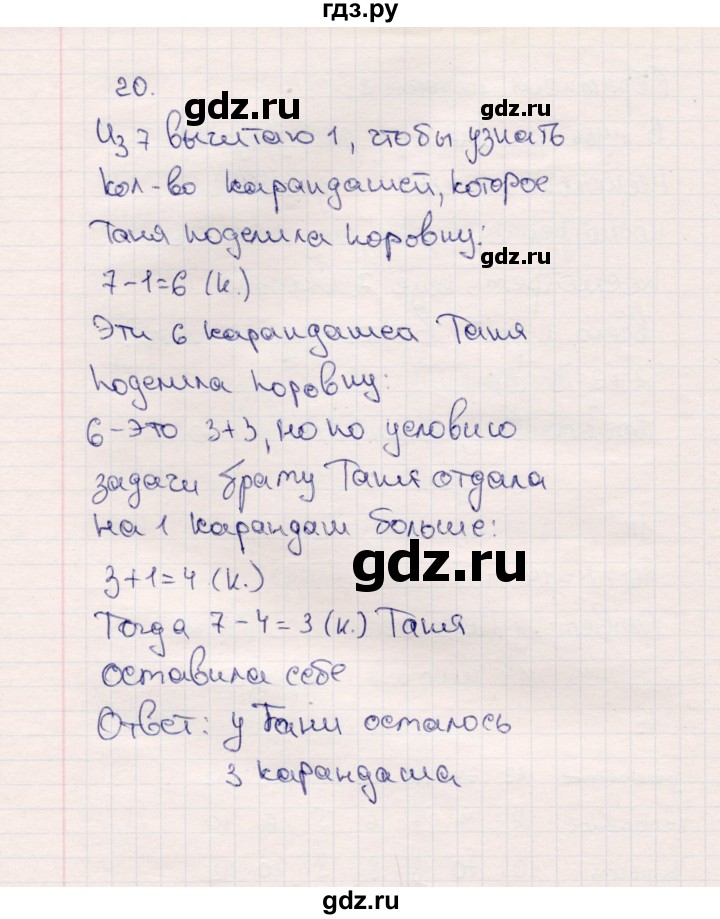 гдз.ру
20.
gdz.ru
gdz.ru
Из 7 вычитаю 1, чтобы узнать
кол-во карандашей, которое
Таня поделила поровну:
gdz.ru
7-1=6 (к.)
Эти 6 карандашеа Таня
поделила поровну:
6-это 3+3, но по условию
задачи брату Таня отдала
на 1 карандаш больше:
gdz.ru
3+1=4 (к.)
Тогда 7-4=3 (к.) Таня
оставила себе
Ответ: у Тани осталось
3 карандаша
gdz.ru